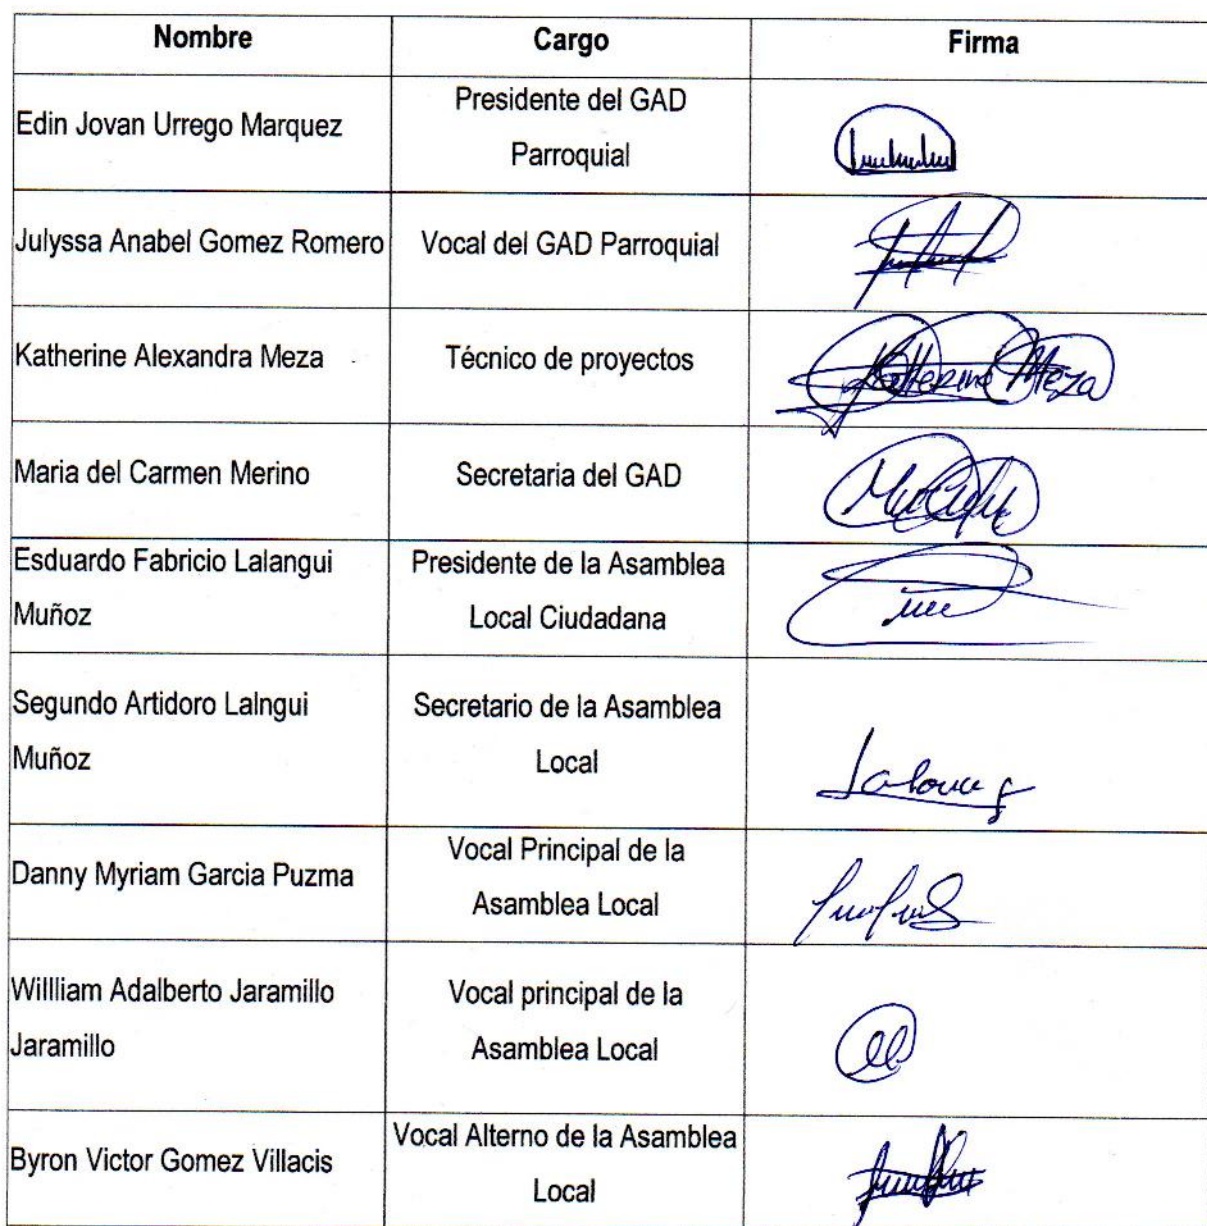 Nombre Cargo Firma
Edin Jovan Urrego Marquez
Presidente del GAD
Parroquial
Julyssa Anabel Gomez Romero
Vocal del GAD Parroquial
Katherine Alexandra Meza
Técnico de proyectos
Katherine Meza
Maria del Carmen Merino
Secretaria del GAD
Esduardo Fabricio Lalangui
Muñoz
Presidente de la Asamblea
Local Ciudadana
Segundo Artidoro Lalngui
Muñoz
Secretario de la Asamblea
Local
Danny Myriam Garcia Puzma
Vocal Principal de la
Asamblea Local
Willliam Adalberto Jaramillo
Jaramillo
Vocal principal de la
Asamblea Local
Byron Victor Gomez Villacis
Vocal Alterno de la Asamblea
Local